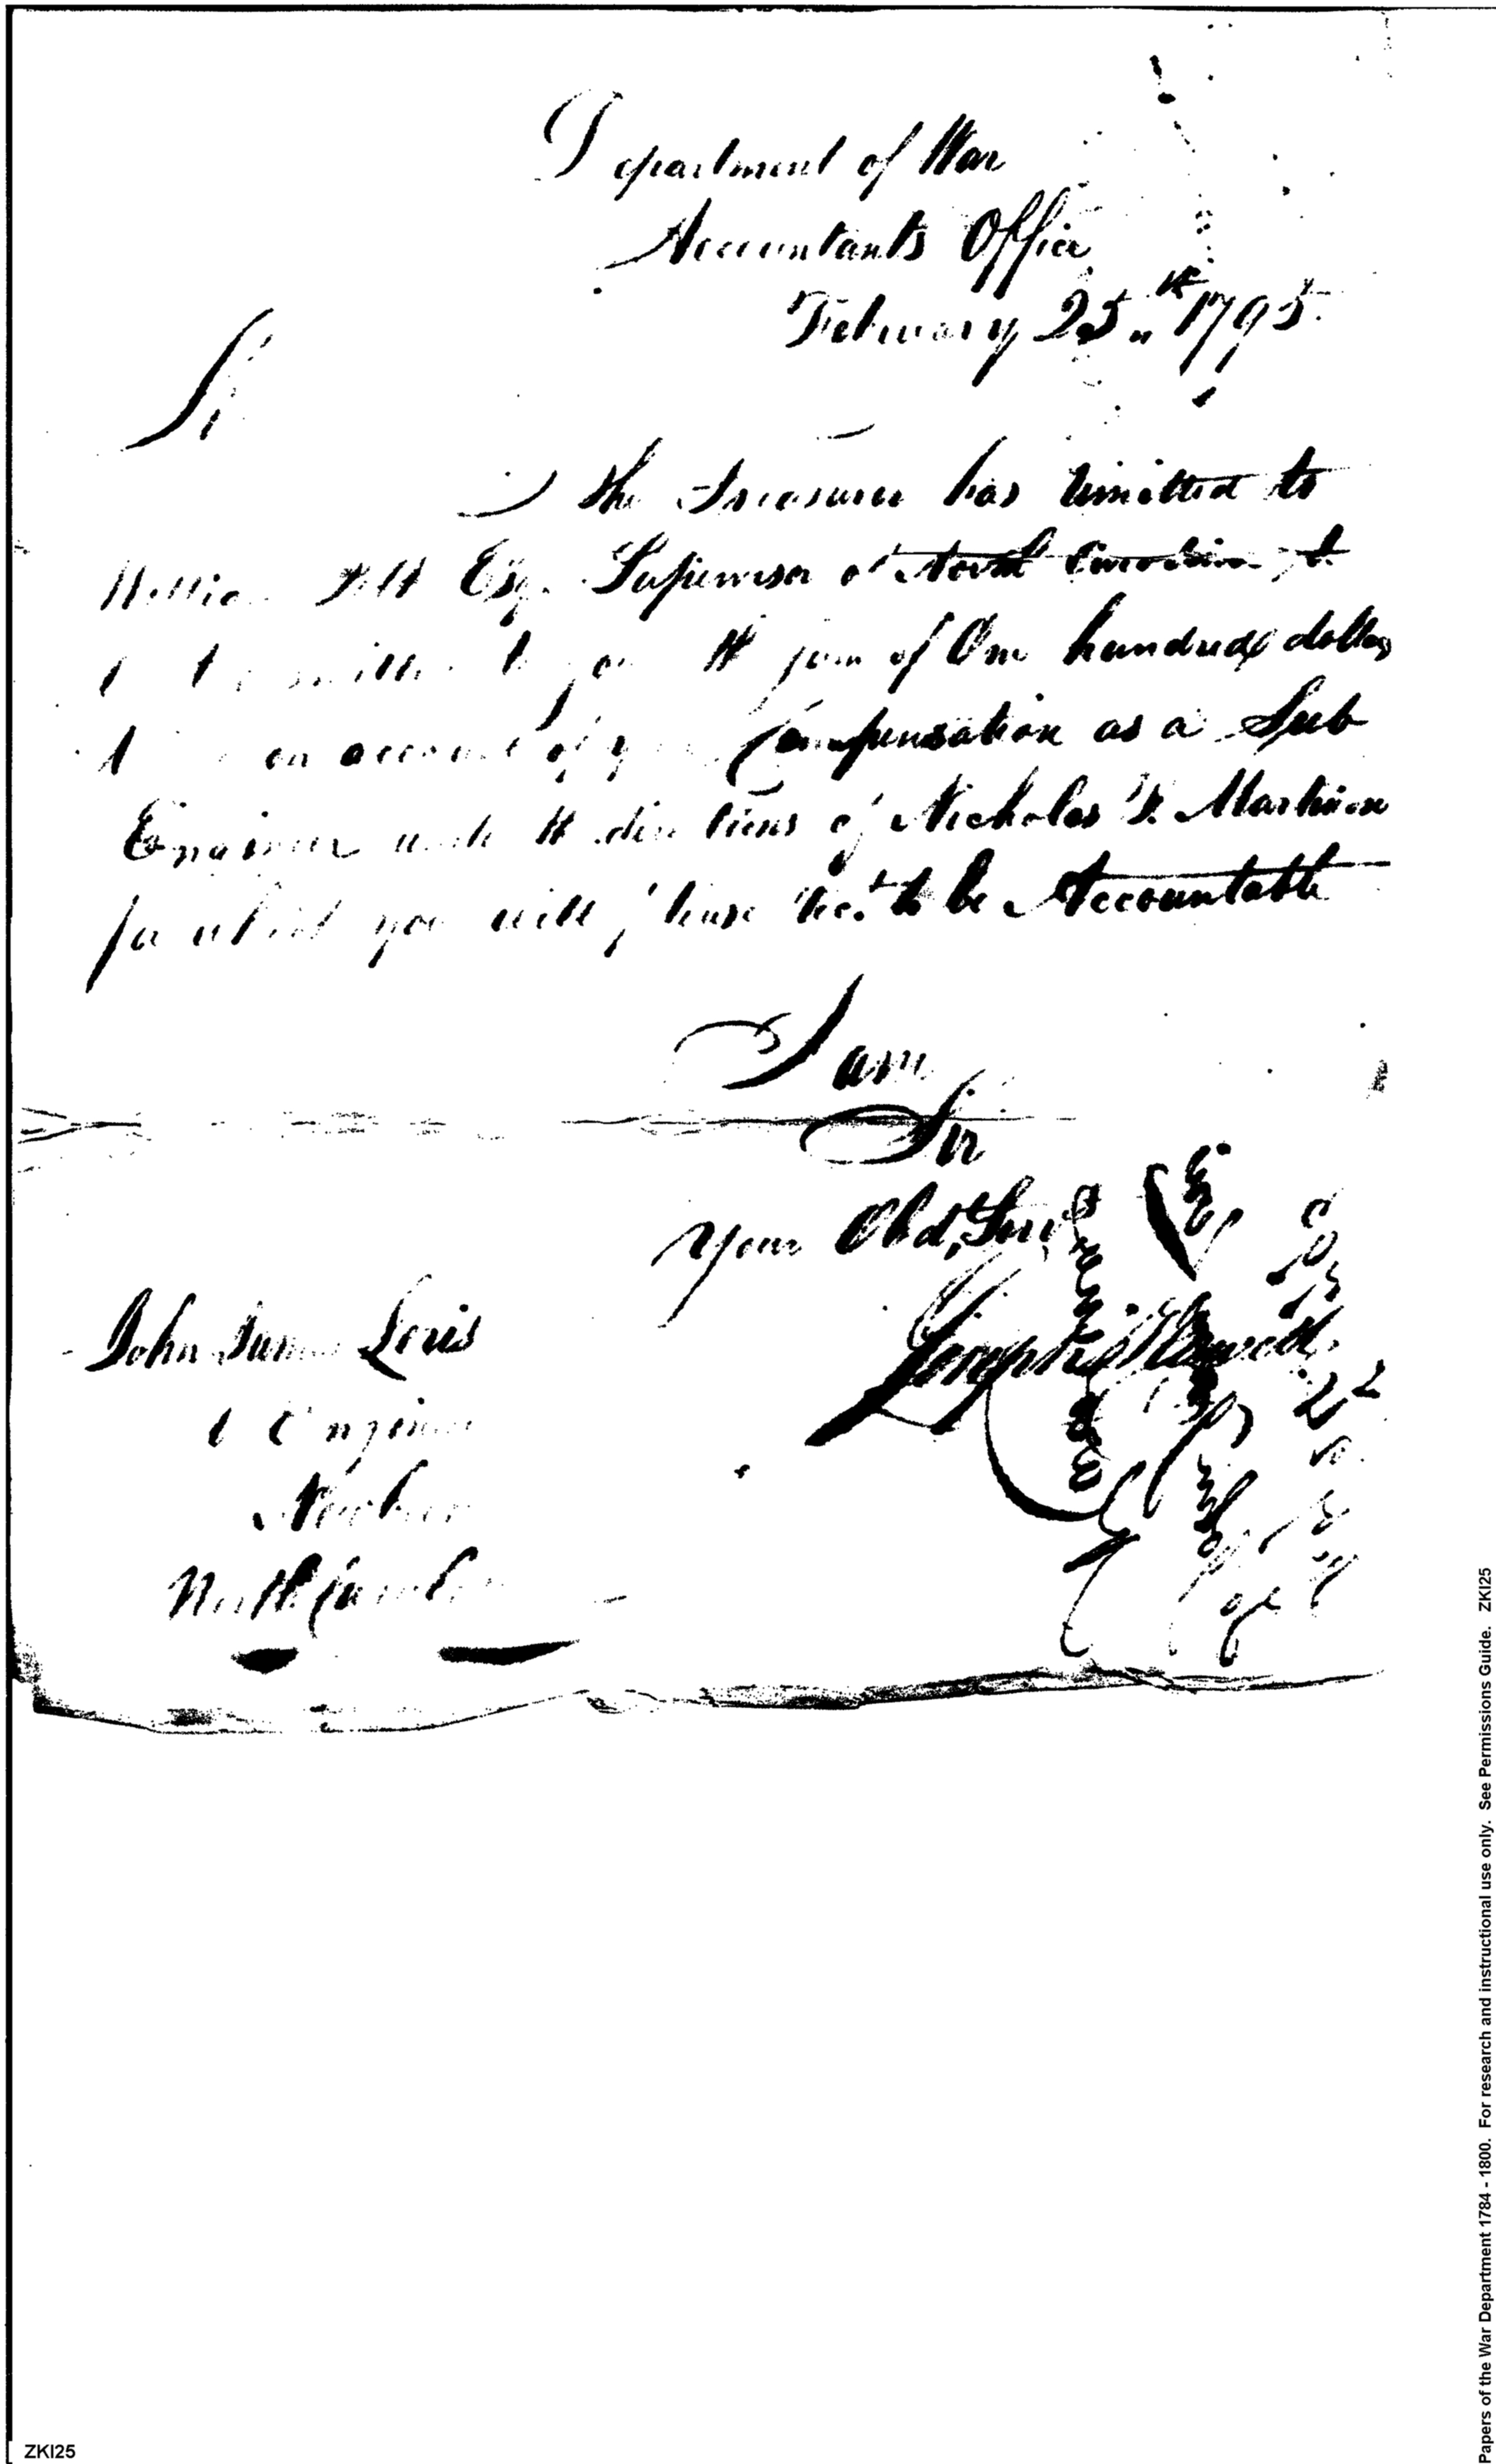 Department of War
Accountants Office
February 25th 1795.
Sir
The Treasurer has remitted to
William Polk Esq. Supervisor of North Carolina to
be transmitted to you the sum of One hundred dollars
on account of your Compensation as a Sub
Engineer under the directions of Nicholas F. Martinon
for which you will please be to be Accountable
I am
Sir
Your Obd. Serv
Joseph Howell
John James Levis
Engineer
Newbern
North Carolina
ZKI25
Papers of the War Department 1784 - 1800. For research and instructional use only. See Permissions Guide. ZKI25